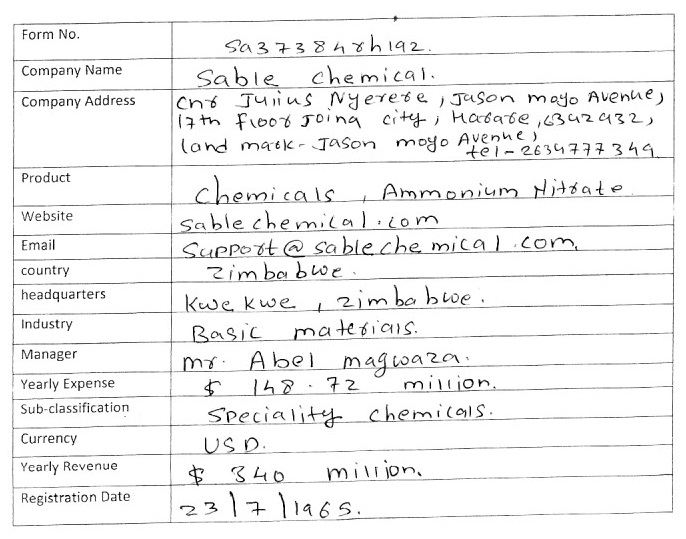 Form No. Sa37384rh192.
Company Name Sable Chemical.
Company Address Cnr Julius Nyerere, Jason moyo Avenue,
17th floor Joina city, Harare, 6342432,
land mark- Jason moyo Avenue,
tel-2634777349
Product Chemicals, Ammonium Nitrate
Website sablechemical.com
Email Support@sablechemical.com,
country Zimbabwe.
headquarters Kwekwe, Zimbabwe.
Industry Basic materials.
Manager mr. Abel magwaza.
Yearly Expense $ 148.72 million.
Sub-classification Speciality chemicals.
Currency USD.
Yearly Revenue $ 340 million.
Registration Date 23/7/1965.